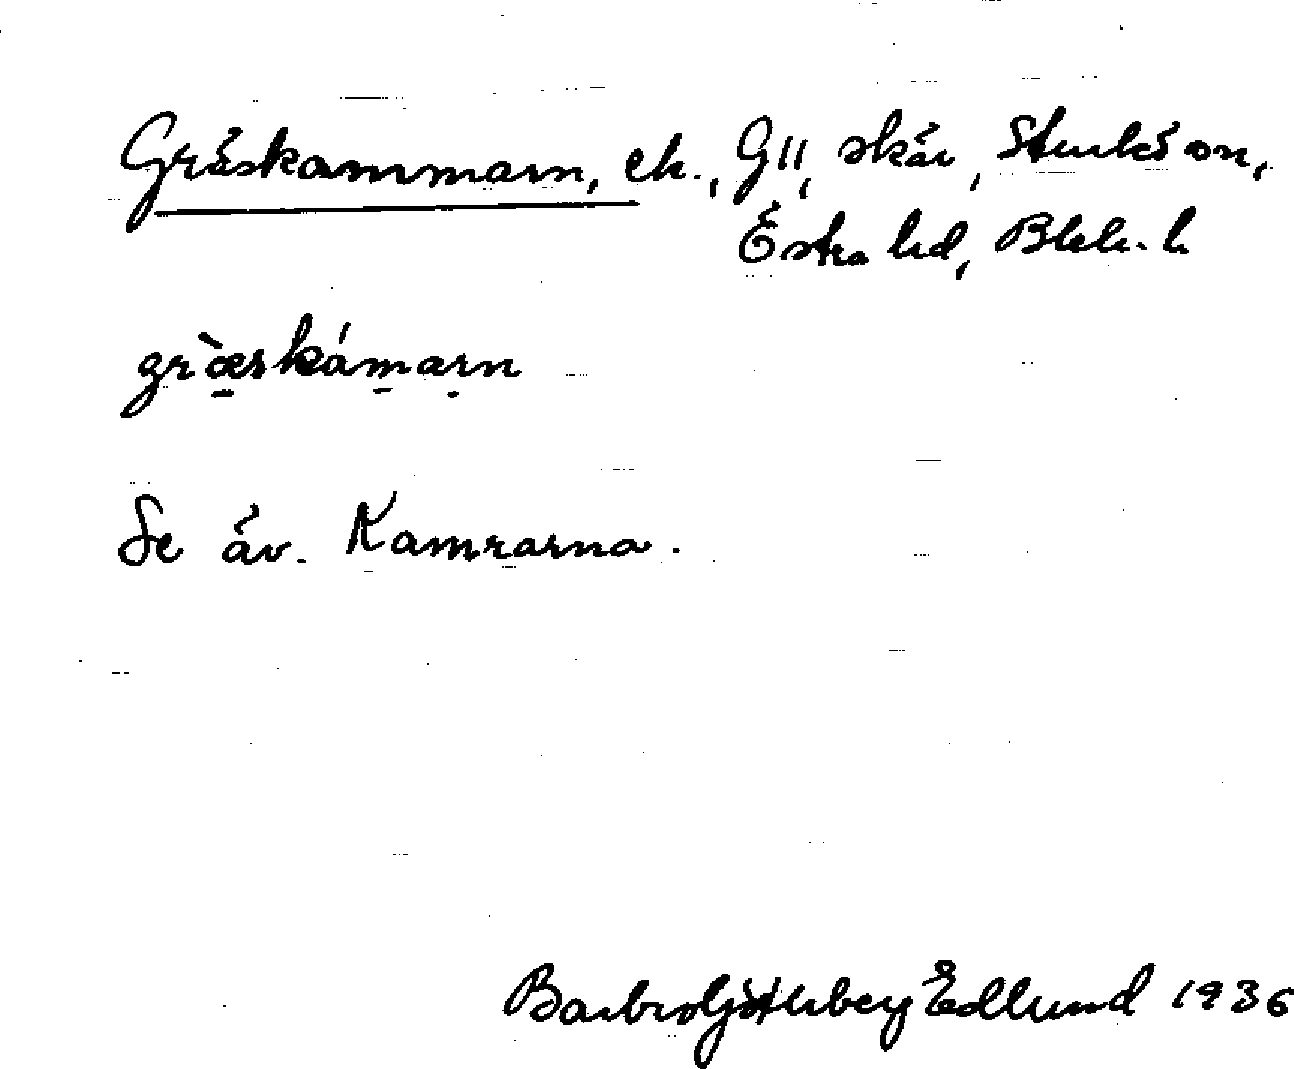 Gräskammarn, ek., G11, skär, Sturkö sn,
Östra hd, Blek. l.
græ̀skámarn
Se äv. Kamrarna.
Barbro Götherberg Edlund 1936